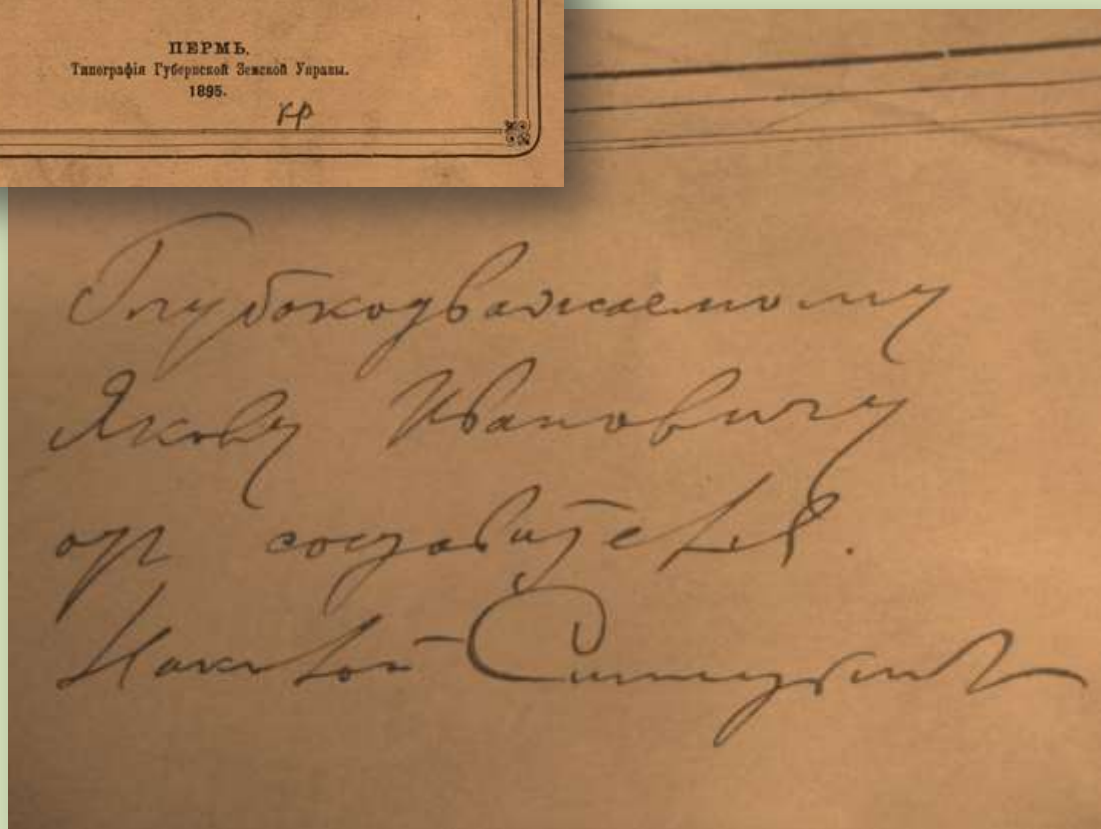 ПЕРМЬ.
Типографія Губернской Земской Управы.
1895.
Глубокоуважаемому
Якову Ивановичу
от составителя.